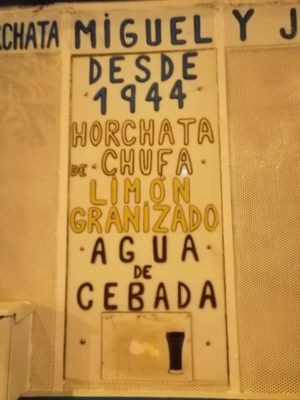 RCHATA MIGUEL Y J
DESDE
1944
HORCHATA
DE CHUFA
LIMÓN
GRANIZADO
AGUA
DE
CEBADA